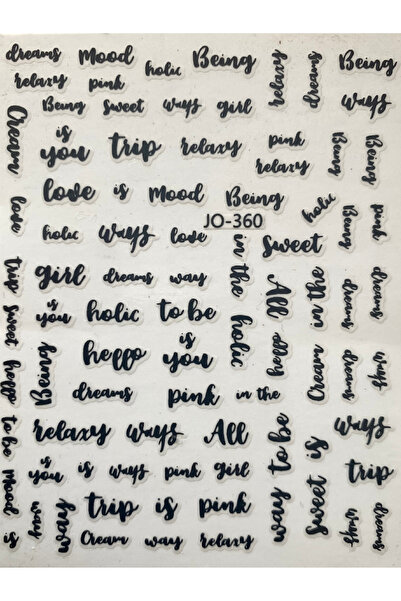 dreams Mood holic Being relaxy dreams Being
relaxy pink
Being Sweet ways girl ways
Cream is you trip relaxy pink relaxy Being Being
love is Mood Being holic
love holic ways love JO-360 Sweet Being pink
in the
trip girl dreams way All in the dreams dreams
sweet is you holic to be holic
hello Being hello is you hello Cream dreams ways
dreams pink in the
to be relaxy ways All way to be sweet is ways
Mood is you is ways pink girl trip
is ways way trip is pink
Cream way relaxy ways dreams